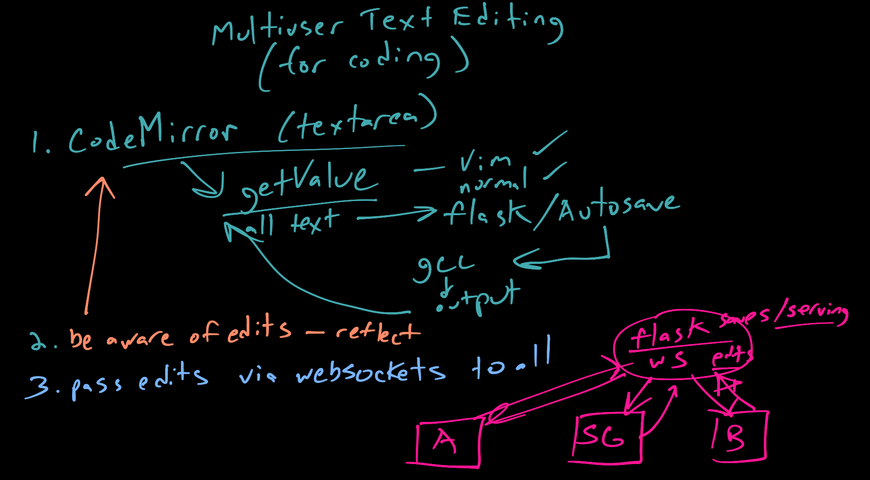 Multiuser Text Editing
(for coding)
1. CodeMirror (textarea)
getValue — vim
normal
all text → flask/Autosave
gcc
output
2. be aware of edits — reflect
3. pass edits via websockets to all
flask saves/serving
ws edits
A
SG
B